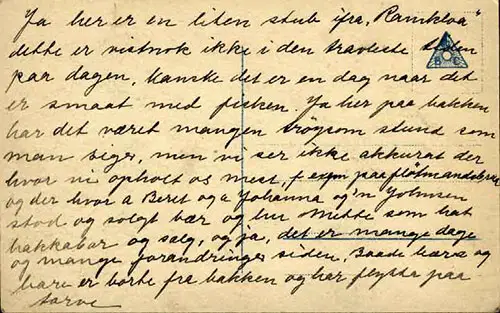 Ja her er en liten stub ifra „Ramkloa"
dette er vistnok ikke i den travleste tiden
paa dagen, kanske det er en dag naar det
er smaat med fisken. Ja her paa bakken
har det været mangen frögsom stund som
man siger, men vi ser ikke akkurat der
hvor vi opholt os mest, f exm paa
og der hvor a Beret og a Johanna og'n Johnsen
stod og solgt bær og hu Mette som hat
bakkabær og sælg, og ja, det er mange dage
og mange forandringer siden. Baade bærs og
bare er borte fra bakken og har flytte paa
torve
B C